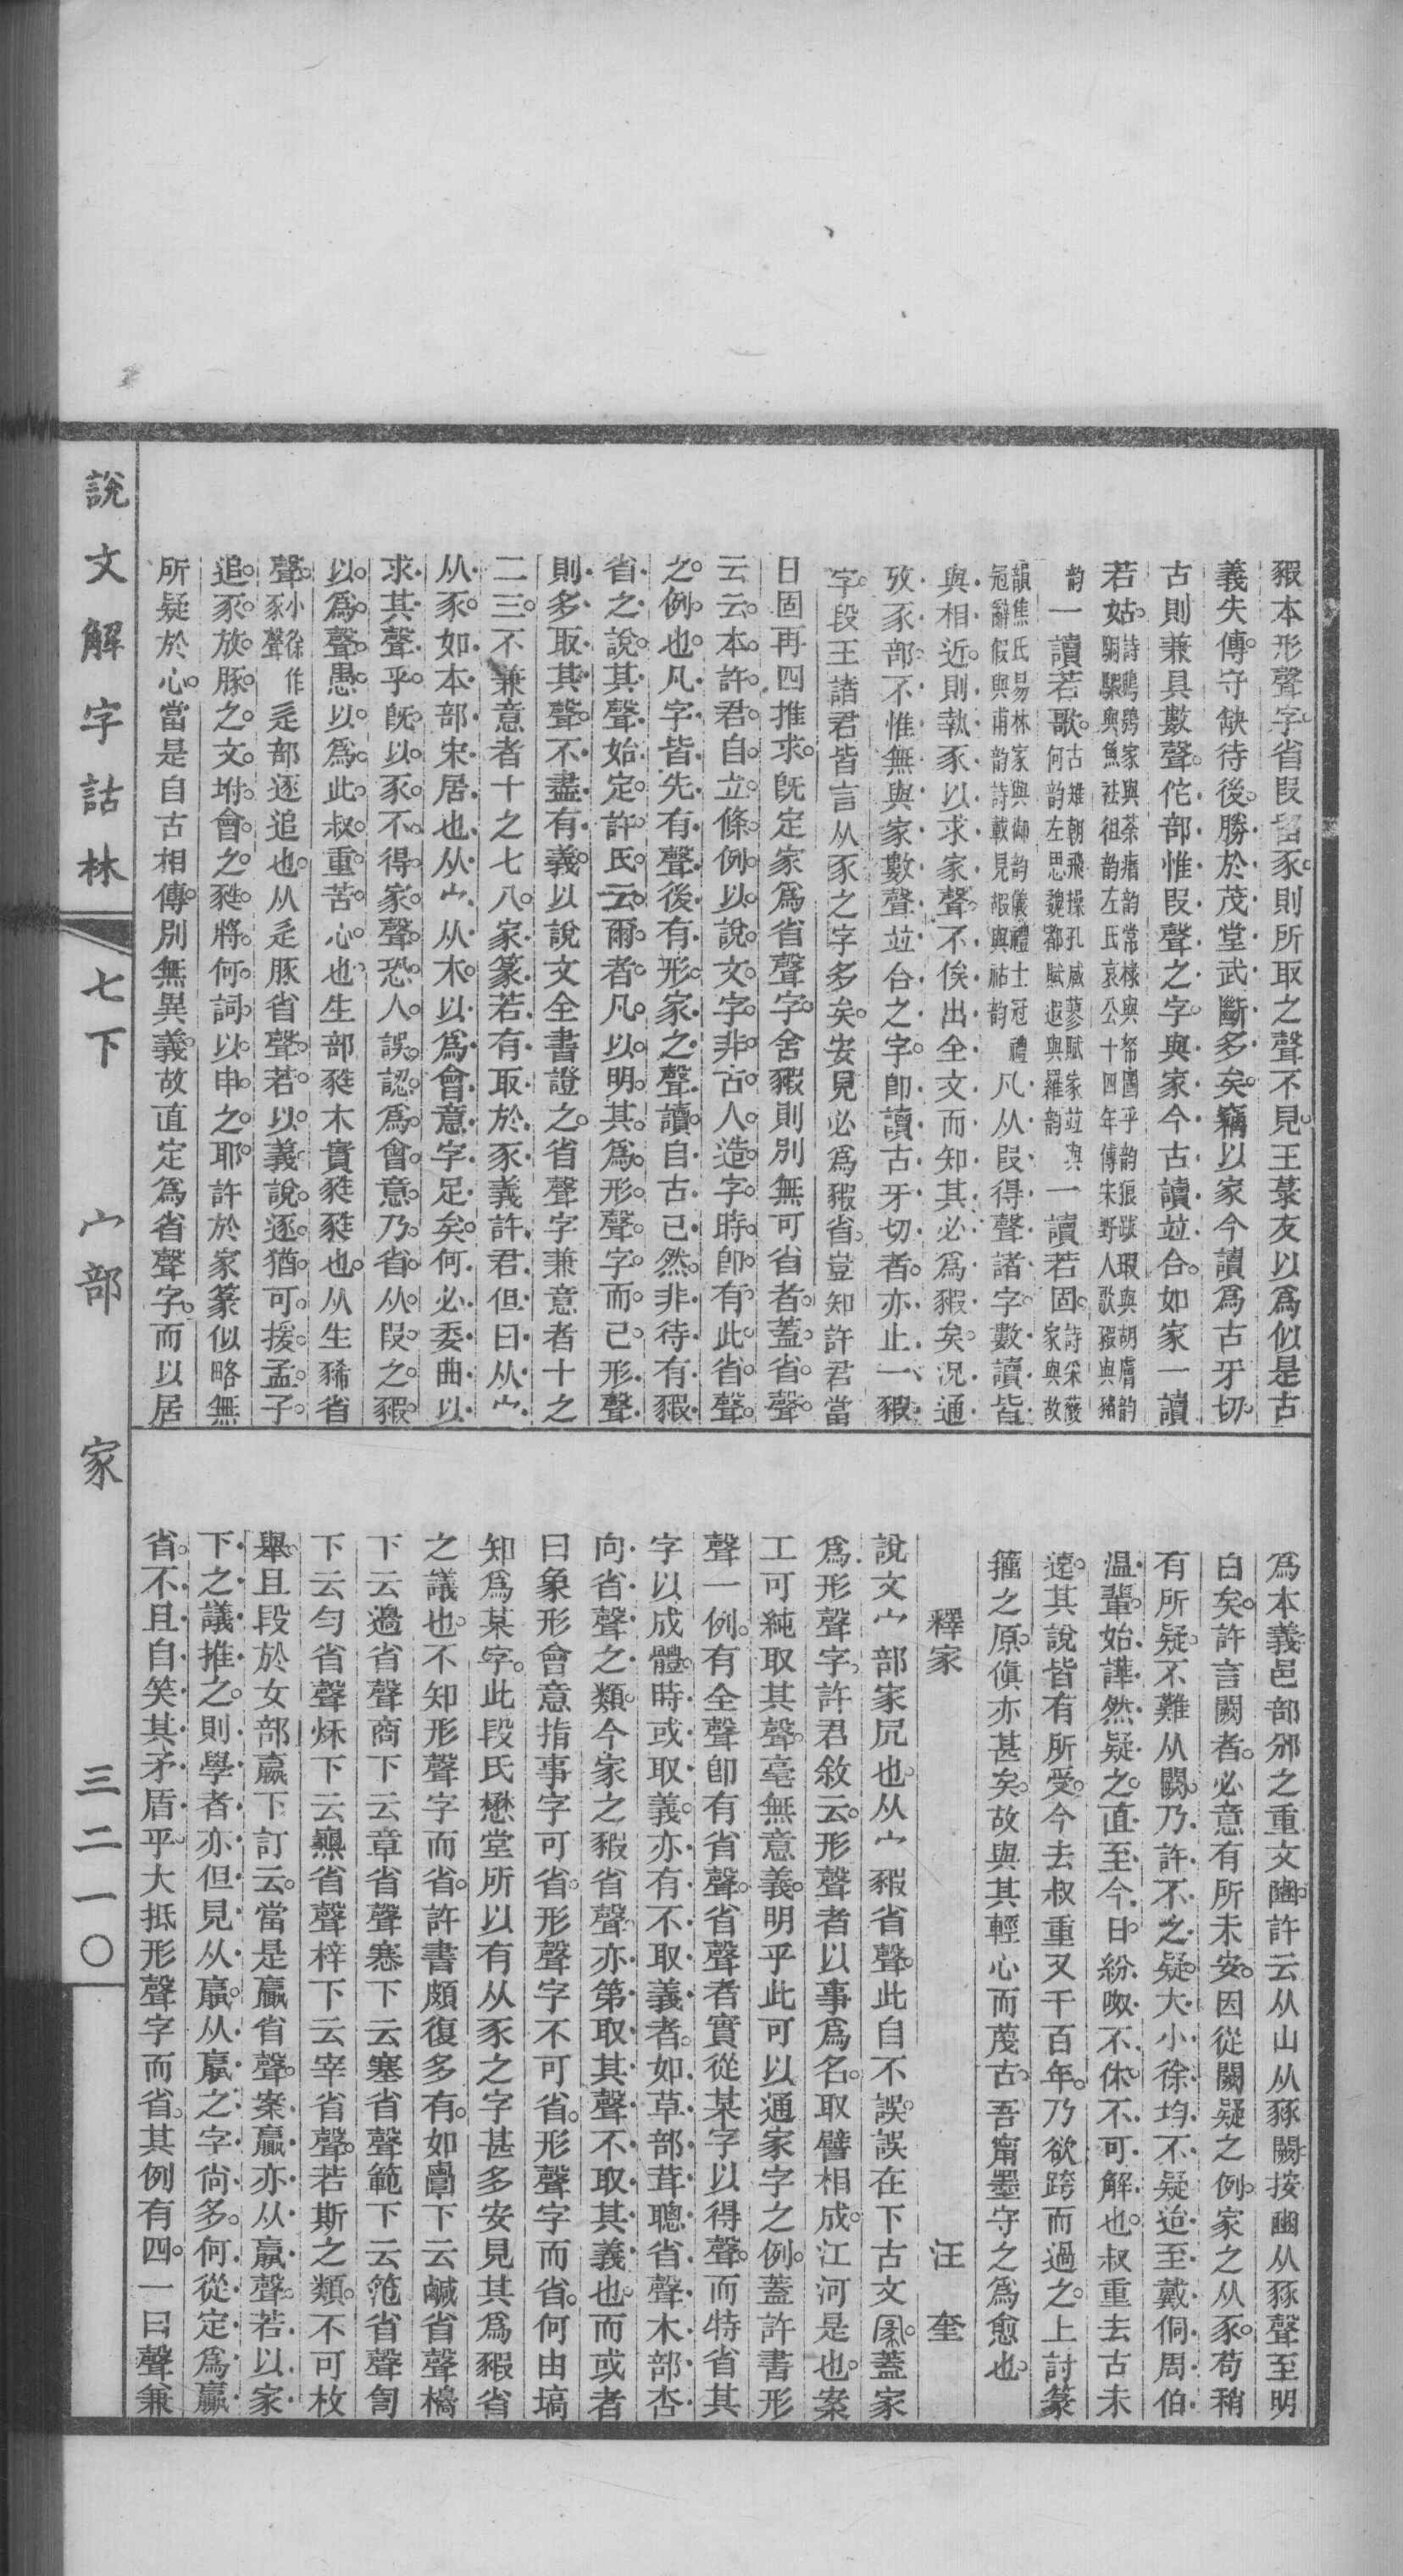 豭本形聲字省叚留豕則所取之聲不見王菉友以爲似是古
義失傳守缺待後勝於茂堂武斷多矣竊以家今讀爲古牙切
古則兼具數聲佗部惟叚聲之字與家今古讀竝合如家一讀
若姑詩鴟鴞家與荼瘏韵常棣與帑圖乎韵狼跋瑕與胡膚韵
騆騵與魚社徂韵左氏哀公十四年傳宋野人歌豭與豬
韵一讀若歌古雉朝飛操孔臧蓼賦家竝與
何韵左思魏都賦遐與羅韵一讀若固詩采薇
家與故
韻焦氏易林家與御韵儀禮士冠禮
冠辭假與甫韵詩載見嘏與祜韵凡从叚得聲諸字數讀皆
與相近則執豕以求家聲不俟出全文而知其必爲豭矣况通
攷豕部不惟無與家數聲竝合之字卽讀古牙切者亦止一豭
字段王諸君皆言从豕之字多矣安見必爲豭省豈知許君當
日固再四推求旣定家爲省聲字舍豭則別無可省者蓋省聲
云云本許君自立條例以說文字非古人造字時卽有此省聲
之例也凡字皆先有聲後有形家之聲讀自古已然非待有豭
省之說其聲始定許氏云爾者凡以明其爲形聲字而已形聲
則多取其聲不盡有義以說文全書證之省聲字兼意者十之
二三不兼意者十之七八家篆若有取於豕義許君但曰从宀
从豕如本部宋居也从宀从木以爲會意字足矣何必委曲以
求其聲乎旣以豕不得家聲恐人誤認爲會意乃省从叚之豭
以爲聲愚以爲此叔重苦心也生部㽔木實㽔㽔也从生豨省
聲小徐作
豕聲辵部逐追也从辵豚省聲若以義說逐猶可援孟子
追豕放豚之文坿會之㽔將何詞以申之耶許於家篆似略無
所疑於心當是自古相傳別無異義故直定爲省聲字而以居
爲本義邑部邠之重文豳許云从山从豩闕按豳从豩聲至明
白矣許言闕者必意有所未安因從闕疑之例家之从豕苟稍
有所疑不難从闕乃許不之疑大小徐均不疑迨至戴侗周伯
温輩始譁然疑之直至今日紛呶不休不可解也叔重去古未
遠其說皆有所受今去叔重又千百年乃欲跨而過之上討篆
籒之原傎亦甚矣故與其輕心而蔑古吾甯墨守之爲愈也
釋家　汪奎
說文宀部家凥也从宀豭省聲此自不誤誤在下古文𠖔蓋家
爲形聲字許君敘云形聲者以事爲名取譬相成江河是也案
工可純取其聲毫無意義明乎此可以通家字之例蓋許書形
聲一例有全聲卽有省聲省聲者實從某字以得聲而特省其
字以成體時或取義亦有不取義者如草部茸聰省聲木部杏
向省聲之類今家之豭省聲亦第取其聲不取其義也而或者
曰象形會意指事字可省形聲字不可省形聲字而省何由塙
知爲某字此段氏懋堂所以有从豕之字甚多安見其爲豭省
之議也不知形聲字而省許書頗復多有如𪉷下云鹹省聲檇
下云邊省聲商下云章省聲寋下云塞省聲範下云笵省聲訇
下云勻省聲秌下云𪚰省聲梓下云宰省聲若斯之類不可枚
舉且段於女部嬴下訂云當是贏省聲案贏亦从𣎆聲若以家
下之議推之則學者亦但見从𣎆从𣎆之字尚多何從定爲贏
省不且自笑其矛盾乎大抵形聲字而省其例有四一曰聲兼
說文解字詁林　七下　宀部　家　三二一〇